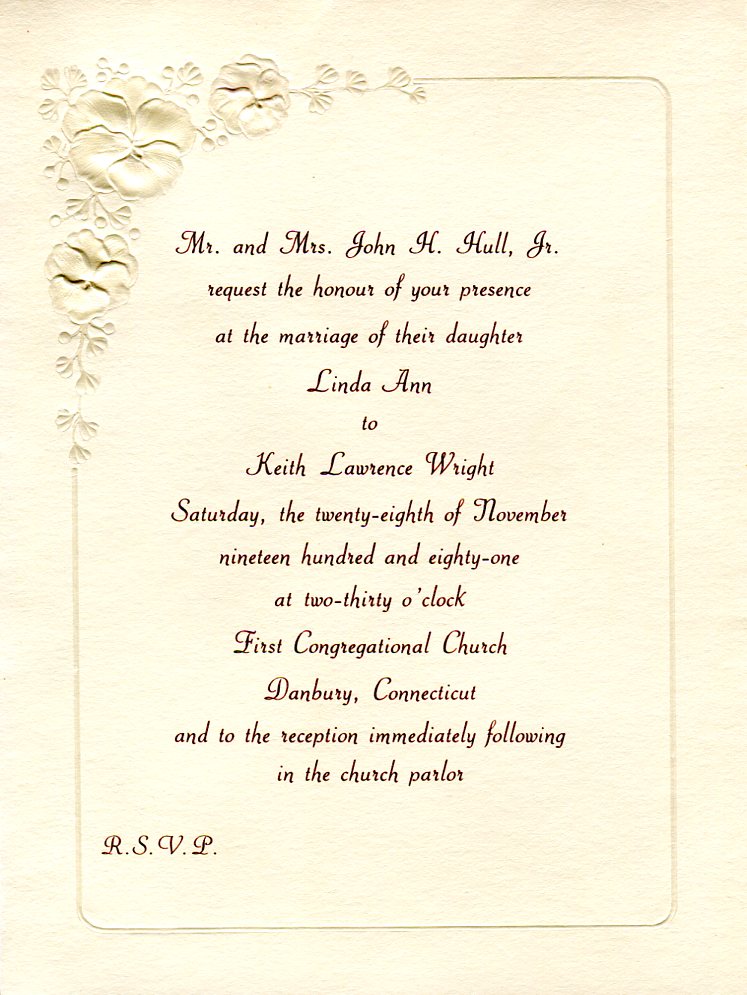 Mr. and Mrs. John H. Hull, Jr.
request the honour of your presence
at the marriage of their daughter
Linda Ann
to
Keith Lawrence Wright
Saturday, the twenty-eighth of November
nineteen hundred and eighty-one
at two-thirty o'clock
First Congregational Church
Danbury, Connecticut
and to the reception immediately following
in the church parlor
R.S.V.P.